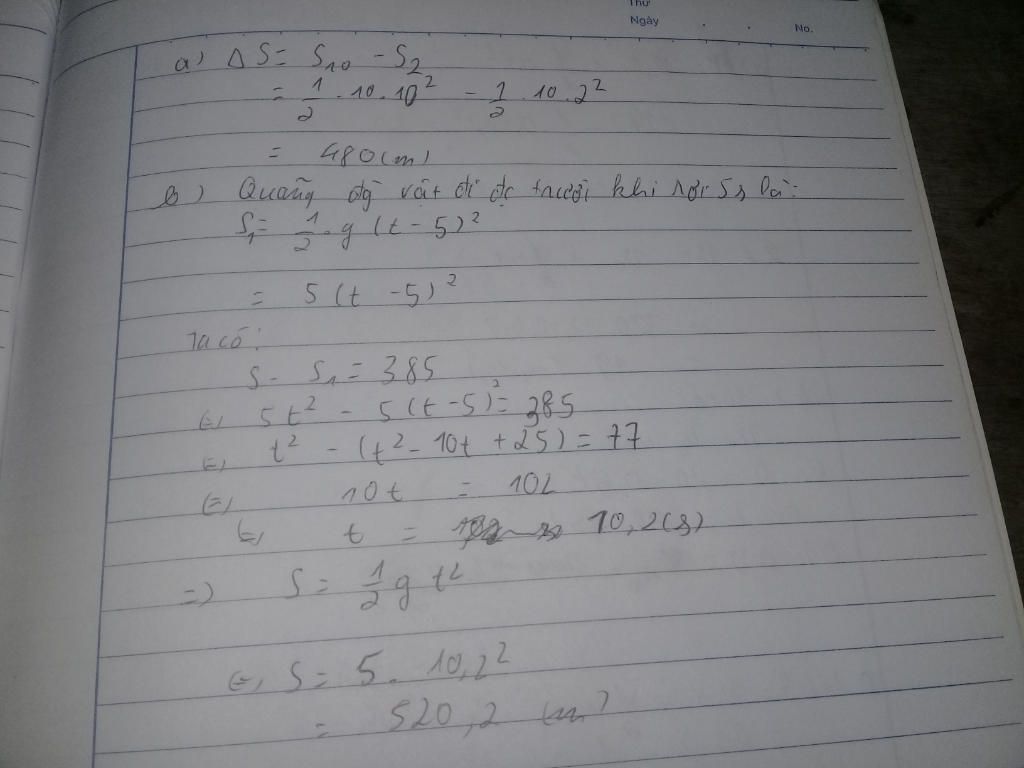 Thứ
Ngày . . No.
a) ΔS = S₁₀ - S₂
= 1/2 . 10 . 10² - 1/2 . 10 . 2²
= 480 (m)
b) Quãng đg vật đi đc trước khi rơi 5s là:
S₁ = 1/2 . g (t - 5)²
= 5 (t - 5)²
Ta có:
S - S₁ = 385
⇔ 5t² - 5(t - 5)² = 385
⇔ t² - (t² - 10t + 25) = 77
⇔ 10t = 102
⇔ t = 10,2 (s)
=> S = 1/2 g t²
⇔ S = 5 . 10,2²
= 520,2 (m)